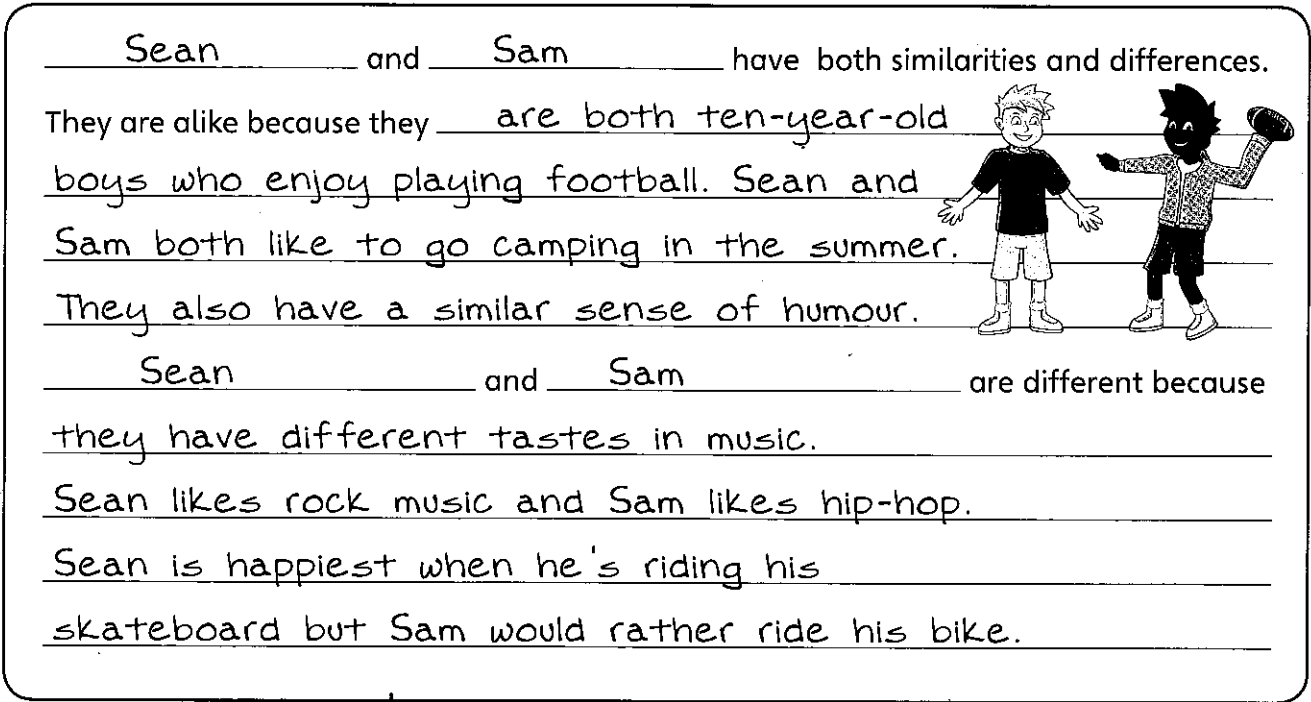 Sean and Sam have both similarities and differences.
They are alike because they are both ten-year-old
boys who enjoy playing football. Sean and
Sam both like to go camping in the summer.
They also have a similar sense of humour.
Sean and Sam are different because
they have different tastes in music.
Sean likes rock music and Sam likes hip-hop.
Sean is happiest when he's riding his
skateboard but Sam would rather ride his bike.